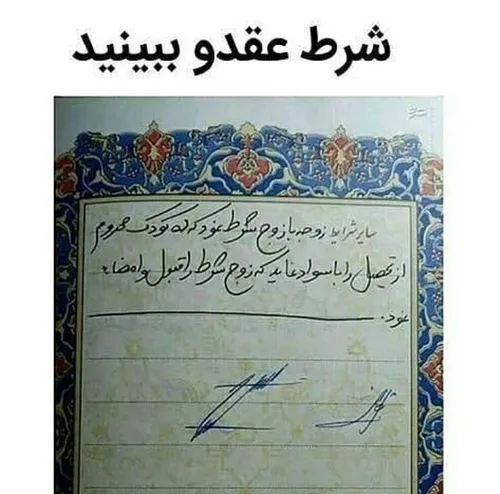 شرط عقدو ببینید
سایر شرایط زوجه با زوج شرط نمود که ده کودک محروم
از تحصیل را باسواد نماید که زوج شرط را قبول و امضاء
نمود.